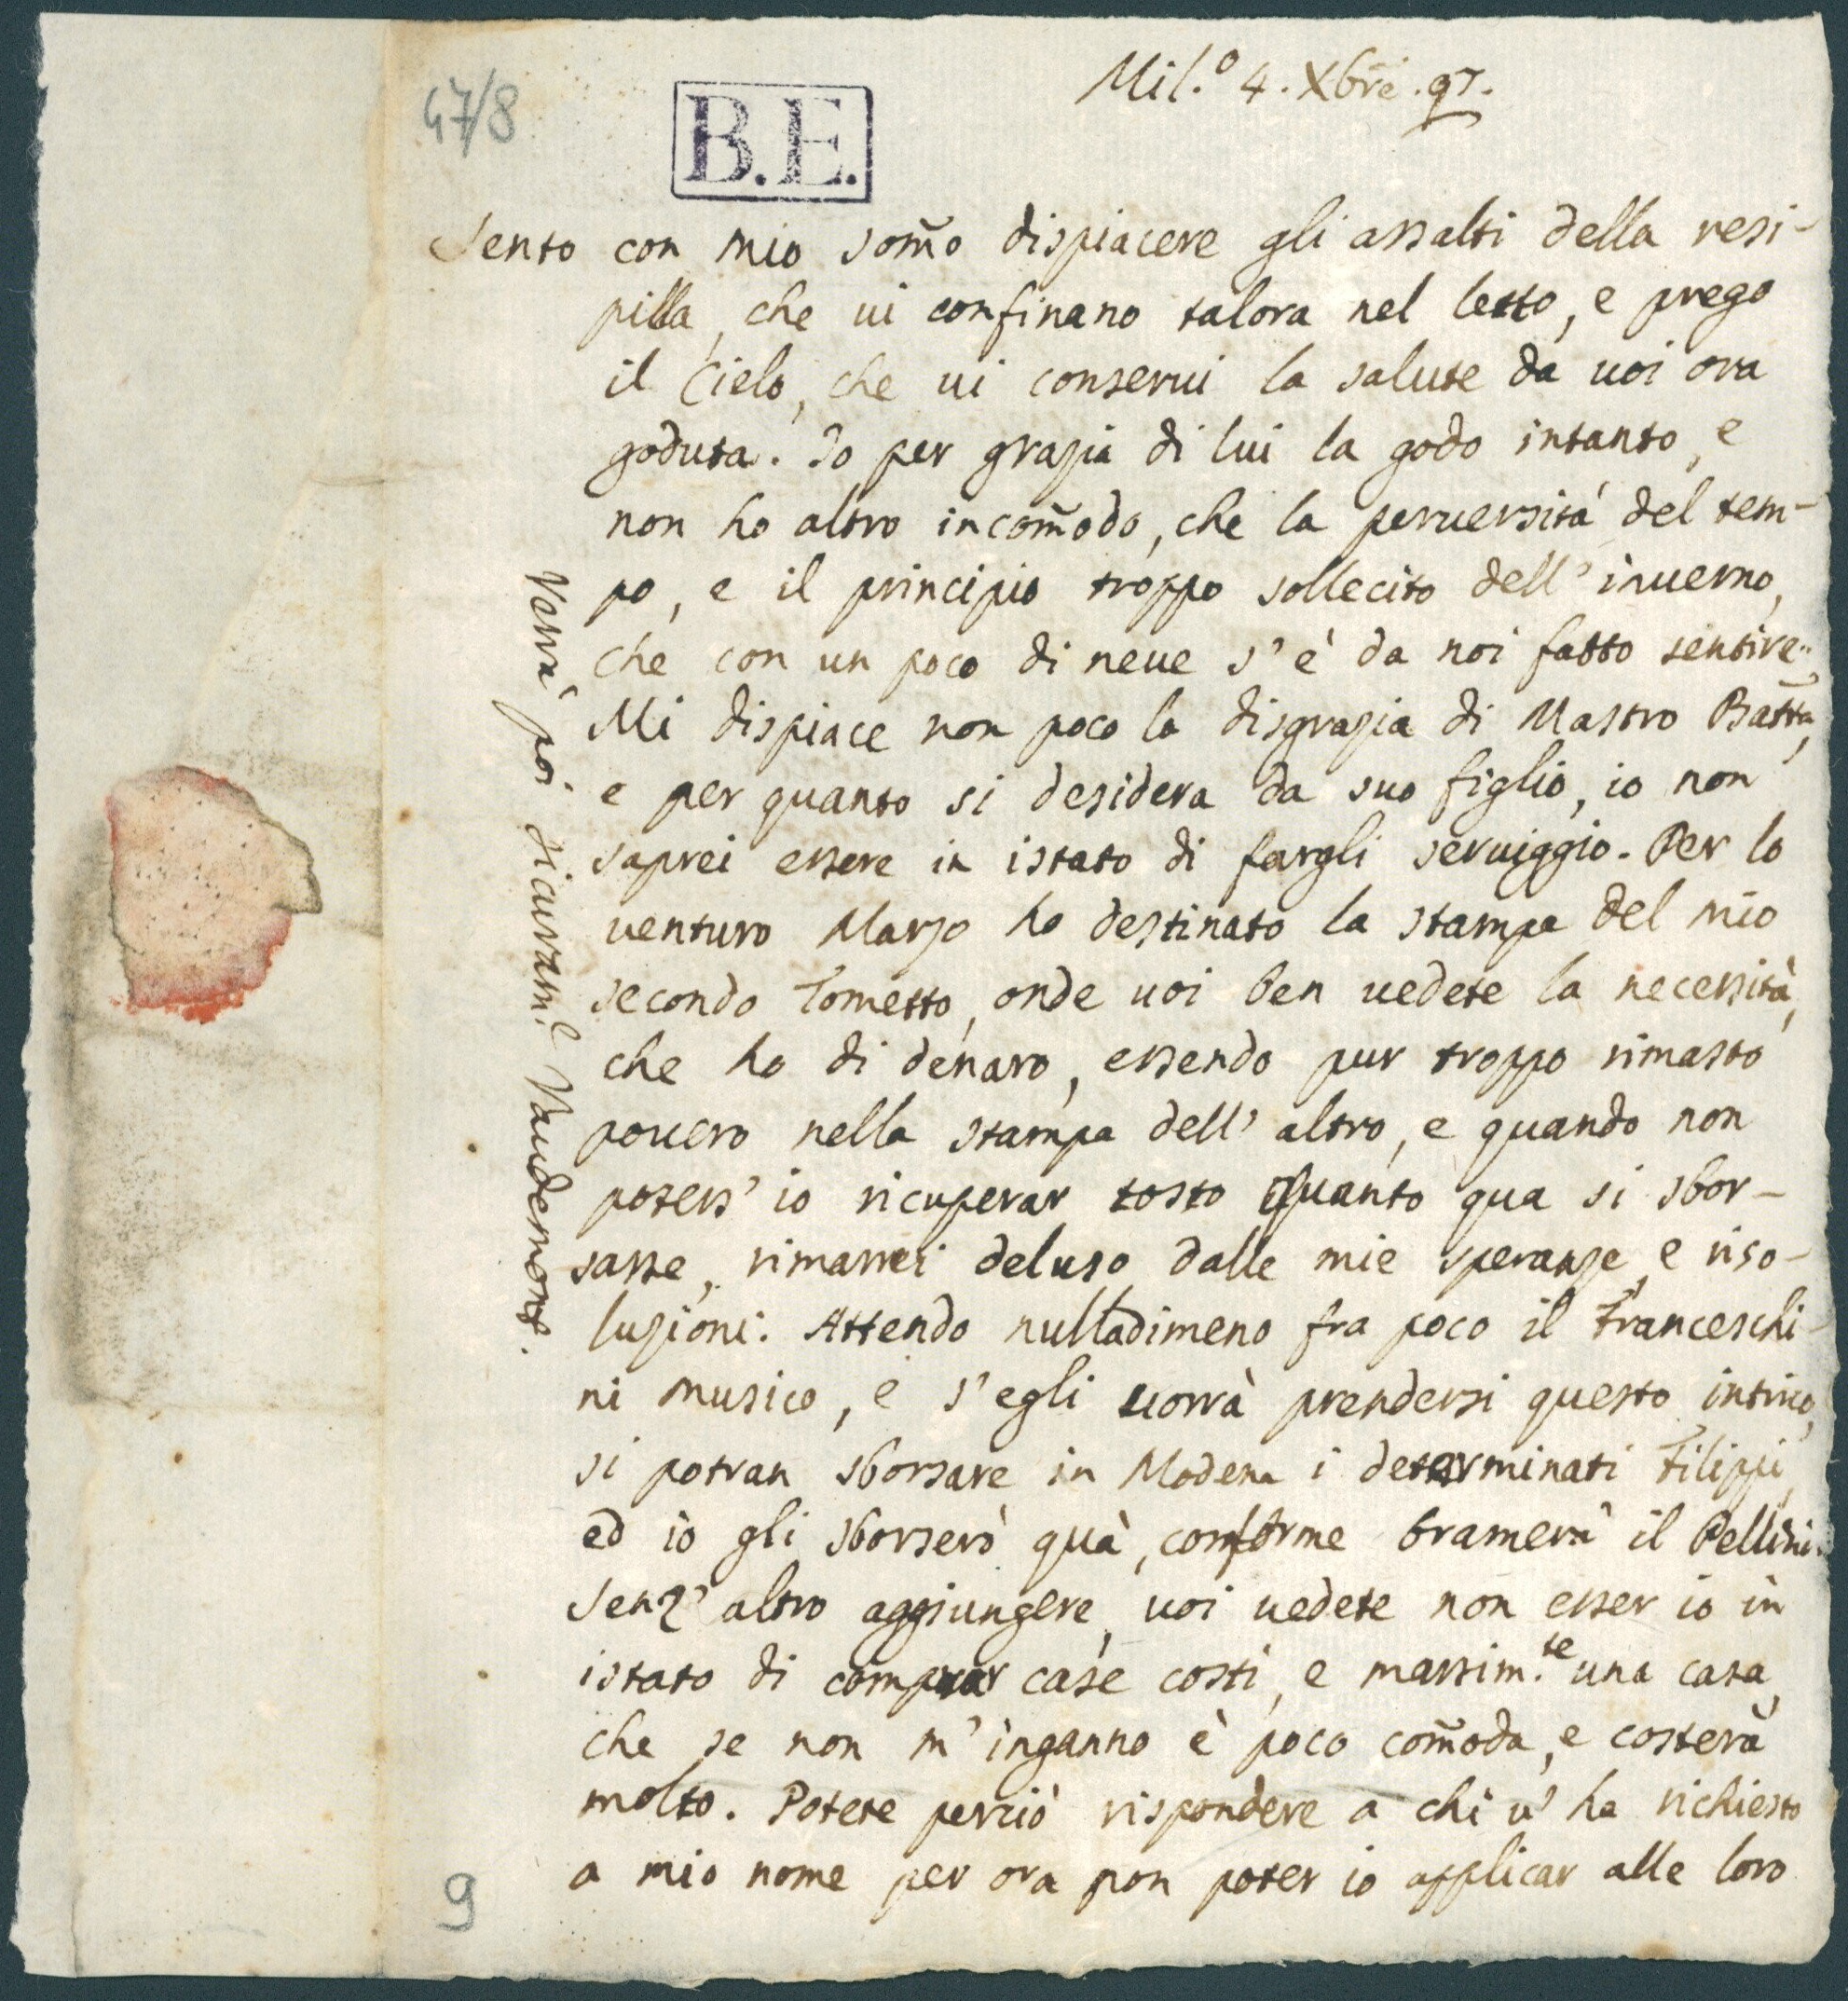 47/8
B.E.
Mil.º 4. Xbr̃e. 97.
Sento con mio som̃o dispiacere gli assalti della resi-
pilla, che ui confinano talora nel letto, e prego
il Cielo, che ui conserui la salute da uoi ora
goduta. Io per grazia di lui la godo intanto, e
non ho altro incom̃odo, che la peruersità del tem-
po, e il principio troppo sollecito dell'inuerno,
che con un poco di neue s'è da noi fatto sentire.
Mi dispiace non poco la disgrazia di Mastro Batt̃a,
e per quanto si desidera da suo figlio, io non
saprei essere in istato di fargli seruiggio. Per lo
uenturo Marzo ho destinato la stampa del mio
secondo Tometto, onde uoi ben uedete la necessità,
che ho di denaro, essendo pur troppo rimasto
pouero nella stampa dell'altro, e quando non
potess'io ricuperar tosto quanto qua si sbor-
sasse, rimarrei deluso dalle mie speranze, e riso-
luzioni. Attendo nulladimeno fra poco il Franceschi-
ni musico, e s'egli uorrà prendersi questo intrico,
si potran sborsare in Modena i determinati Filippi,
ed io gli sborserò quà, conforme bramerà il Pellini.
Senz'altro aggiungere, uoi uedete non esser io in
istato di comprar case costì, e massim.te una casa,
che se non m'inganno è poco com̃oda, e costerà
molto. Potete perciò rispondere a chi u'ha richiesto
a mio nome per ora non poter io applicar alle loro
Verrà poi sicuram.e Vaudemont.
9